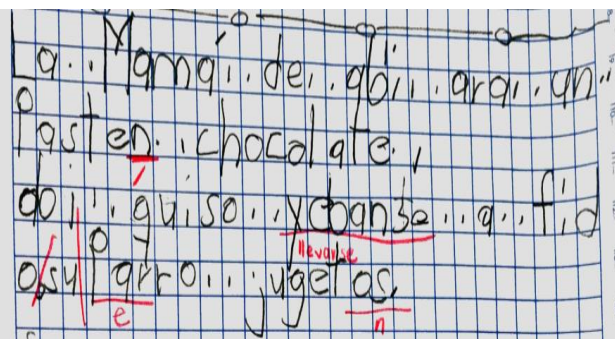 La..Mamá..de..abi..ara..un..
Pasten..chocolate.,
abi..quiso..ycbanse..a..fid
o/su Parro..jugetos
llevarse
e
n